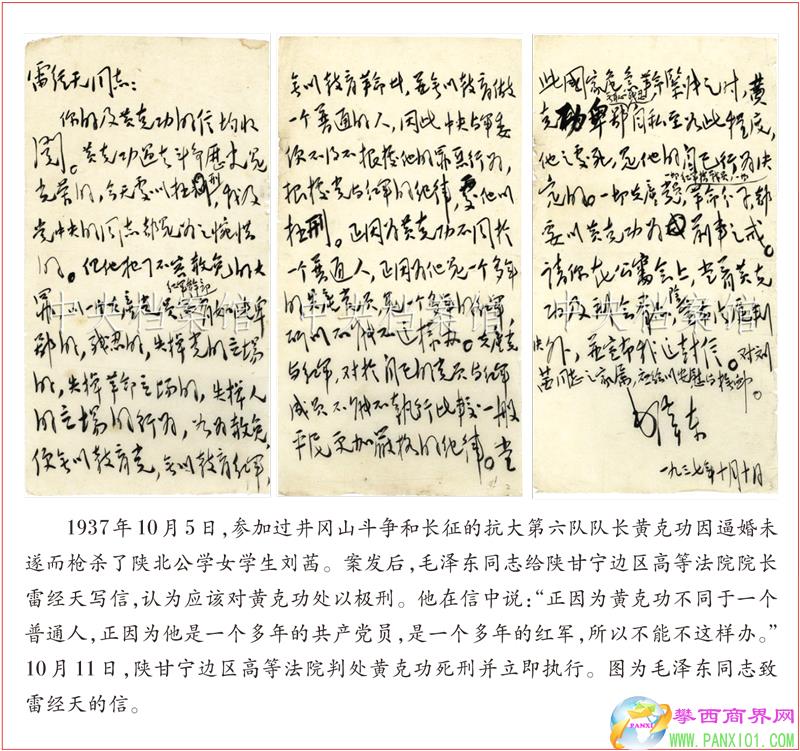 雷经天同志:
你的及黄克功的信均收
阅。黄克功过去斗争历史是
光荣的,今天处以极刑,我及
党中央的同志都是为之惋惜
的。但他犯了不容赦免的大
罪,以一个共产党员红军干部而有如此卑
鄙的,残忍的,失掉党的立场
的,失掉革命立场的,失掉人
的立场的行为,如为赦免,
便无以教育党,无以教育红军,
无以教育革命者,并无以教育做
一个普通的人,因此中央与军委
便不得不根据他的罪恶行为,
根据党与红军的纪律,处他以
极刑。正因为黄克功不同于
一个普通人,正因为他是一个多年
的共产党员,是一个多年的红军,
所以不能不这样办。共产党
与红军,对于自己的党员与红军
成员不能不执行比较一般
平民更加严格的纪律。当
此国家危急革命紧张之时,黄
克功卑鄙无耻残忍自私至如此程度,
他之处死,是他的自己行为决
定的。一切共产党员,一切红军指战员,一切革命分子,都
要以黄克功为前车之戒。
请你在公审会上,当着黄克
功及到会群众,除宣布法庭判
决外,并宣布我这封信。对刘
茜同志之家属,应给以安慰与抚恤。
毛泽东
一九三七年十月十日
中央档案馆
中央档案馆
中央档案馆
1937年10月5日,参加过井冈山斗争和长征的抗大第六队队长黄克功因逼婚未
遂而枪杀了陕北公学女学生刘茜。案发后,毛泽东同志给陕甘宁边区高等法院院长
雷经天写信,认为应该对黄克功处以极刑。他在信中说:“正因为黄克功不同于一个
普通人,正因为他是一个多年的共产党员,是一个多年的红军,所以不能不这样办。”
10月11日,陕甘宁边区高等法院判处黄克功死刑并立即执行。图为毛泽东同志致
雷经天的信。
PANXI
攀西商界网
www.PANXI01.COM